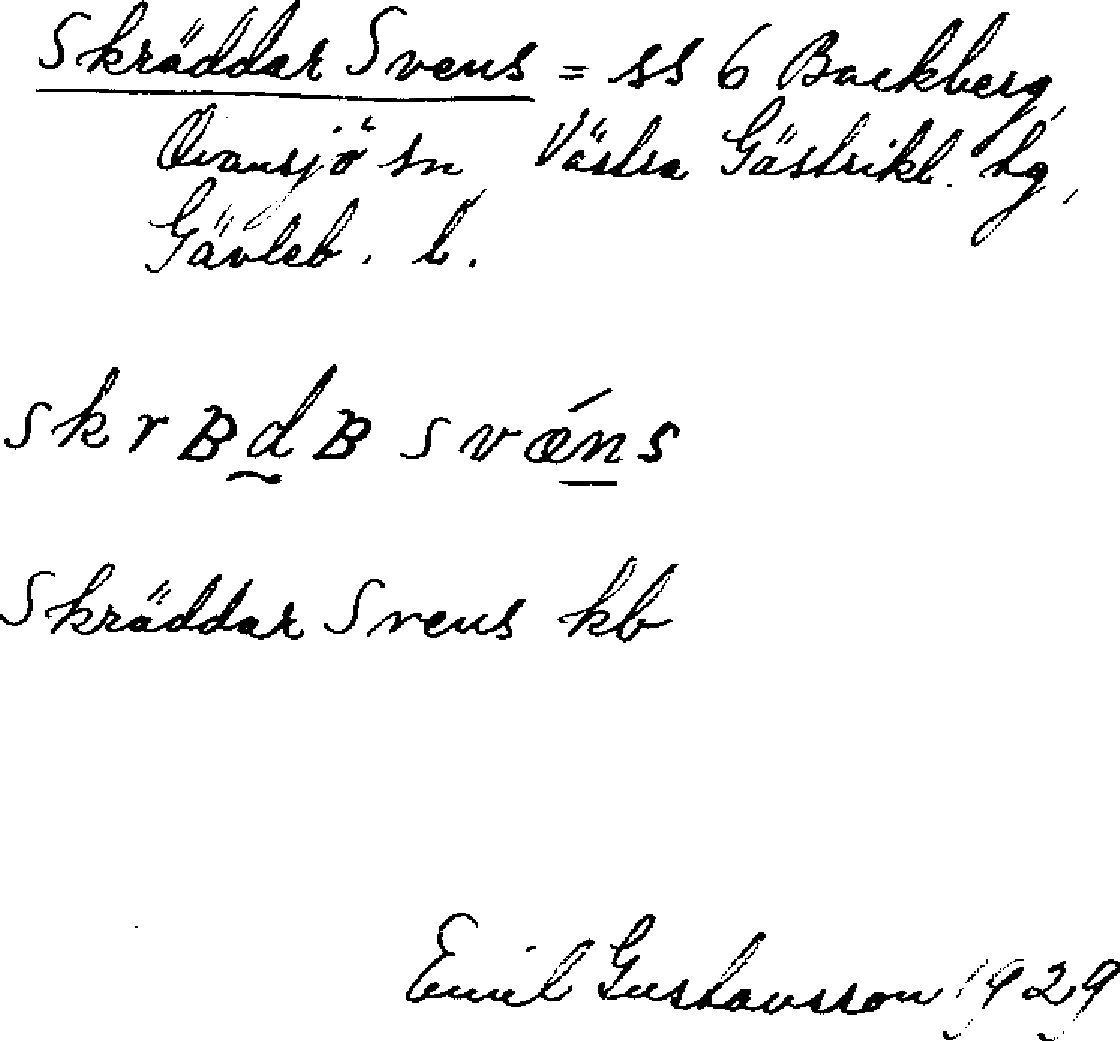 Skräddar Svens = ss 6 Backberg,
Ovansjö sn, Västra Gästrikl. hg,
Gävleb. l.
skrBdB svǽns
Skräddar Svens kb
Emil Gustavsson 1929